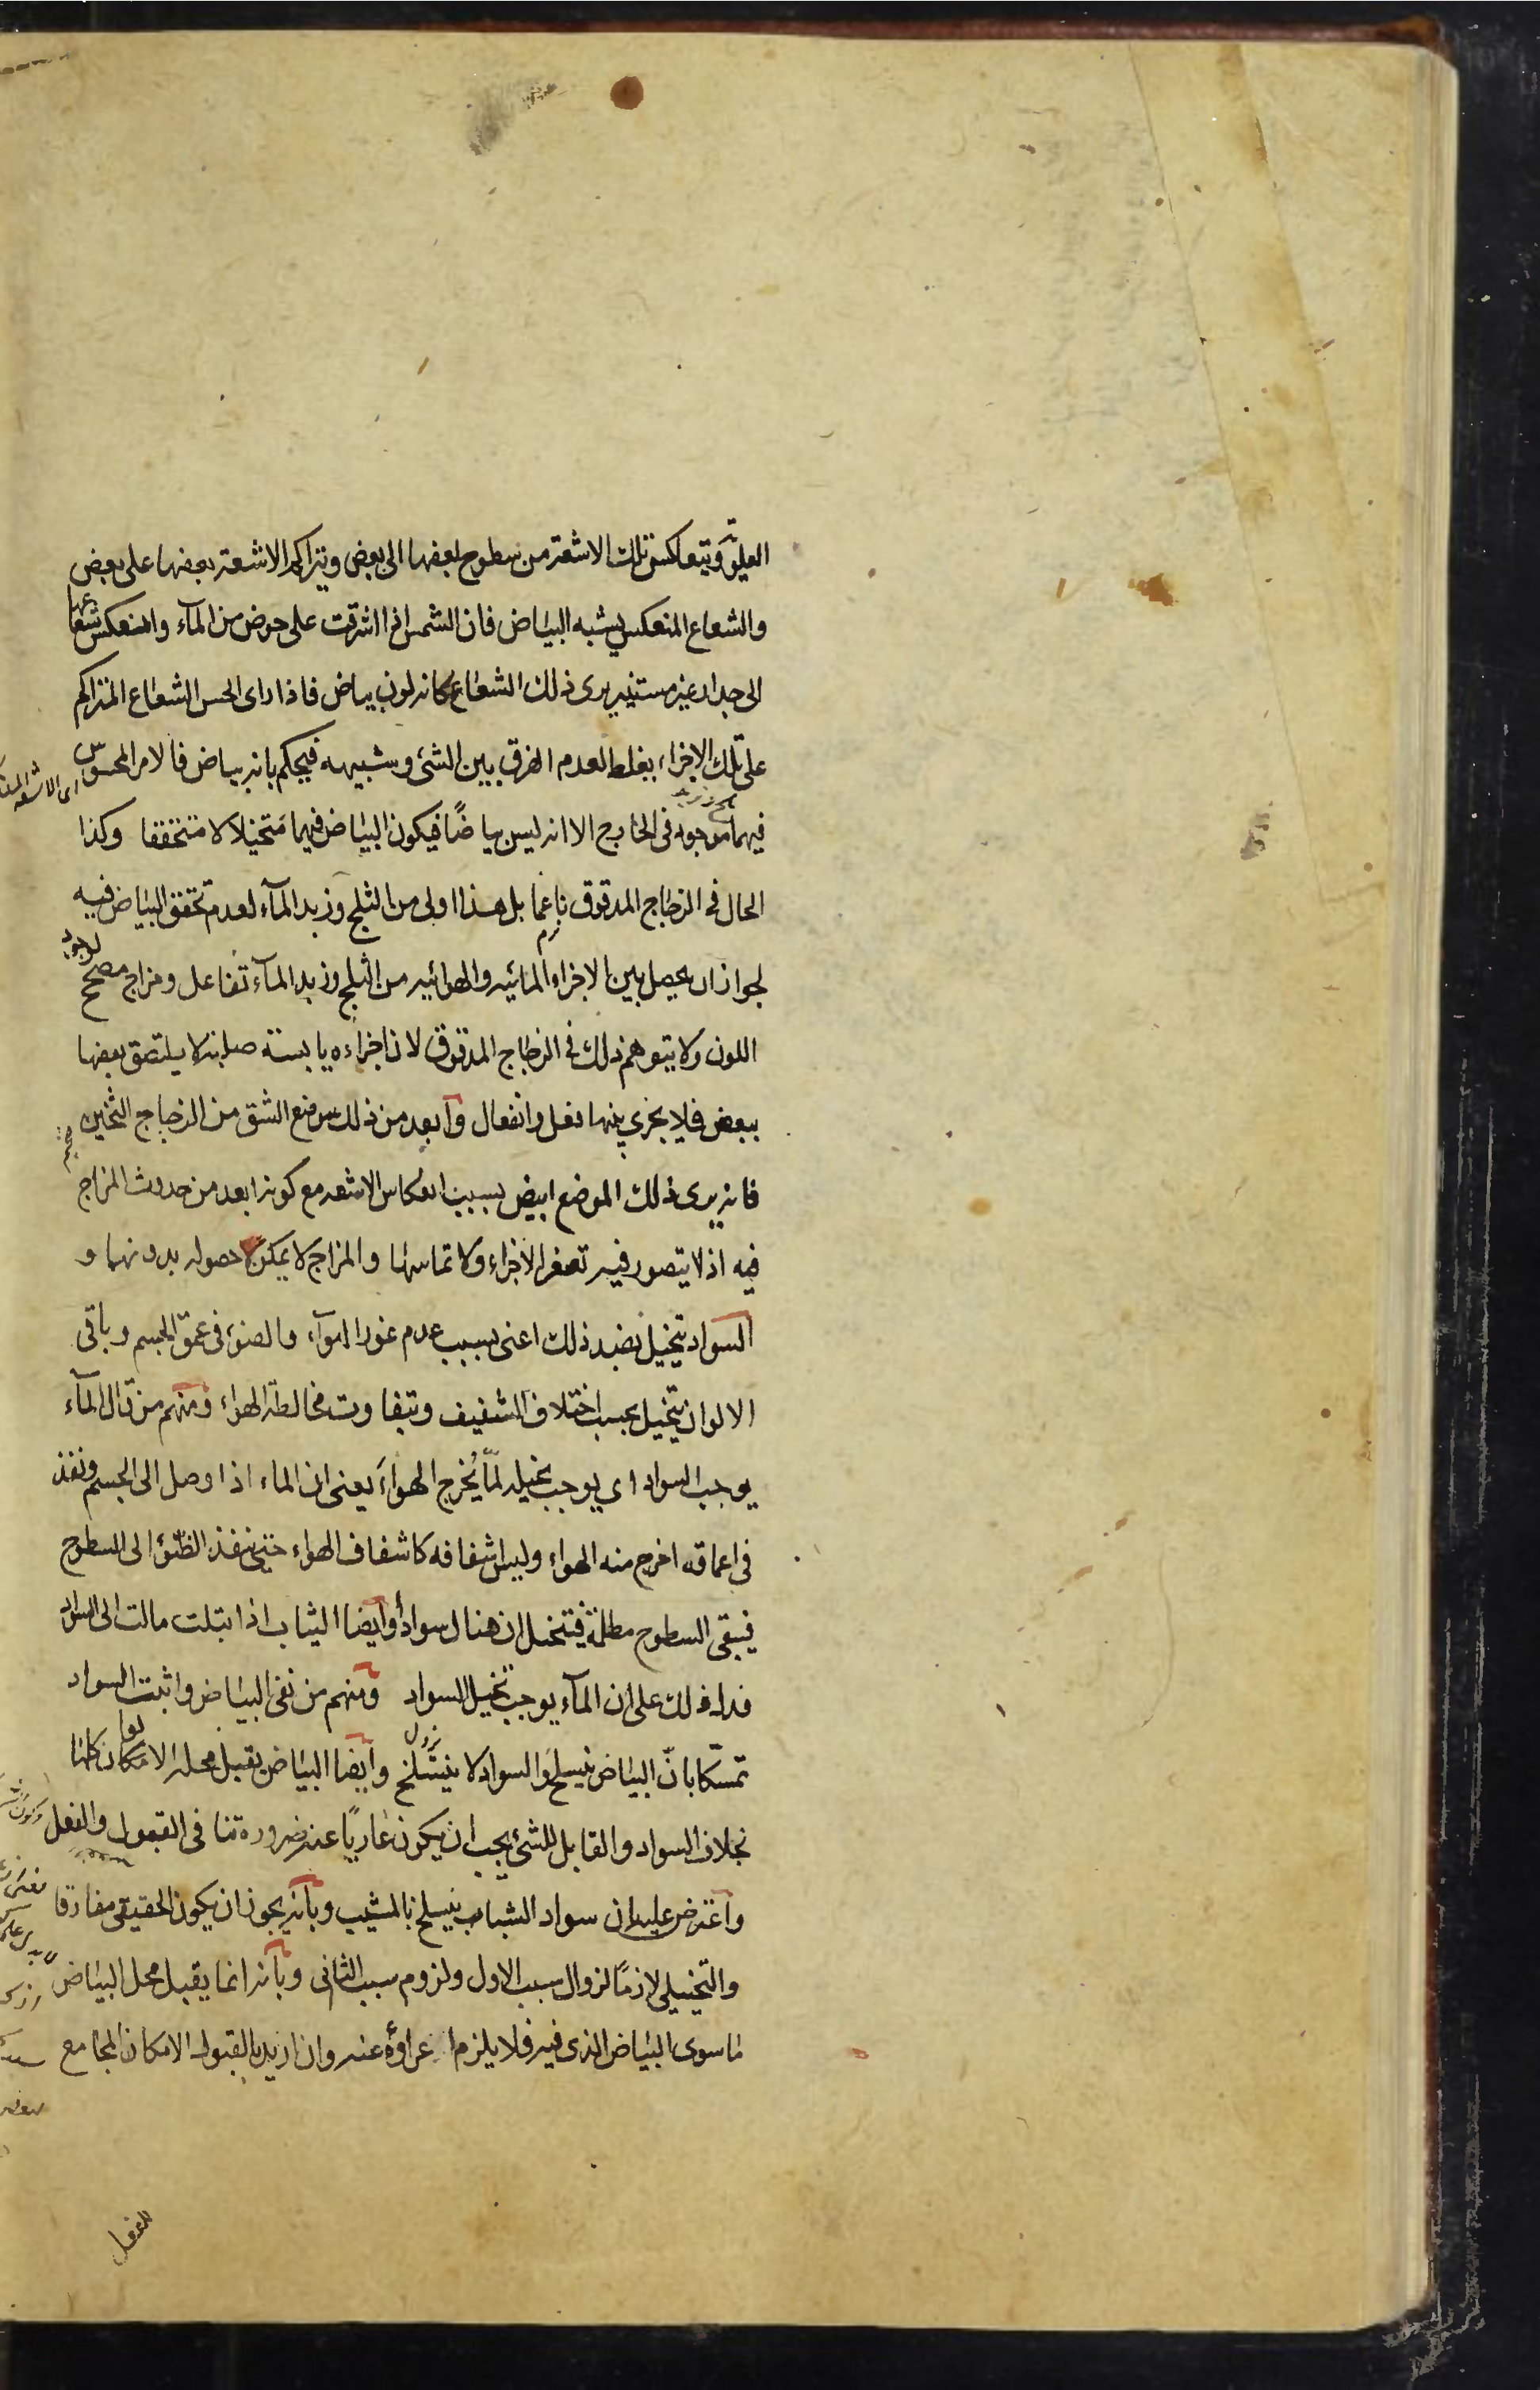 العلو ويتعاكس تلك الاشعة من سطوح بعضها الى بعض ويتراكم الاشعة بعضها على بعض
والشعاع المنعكس يشبه البياض فان الشمس اذا اشرقت على حوض من المآء وانعكس شعاعها
الى جدار غير مستنير يرى ذلك الشعاع كانه لون بياض فاذا راى الحس الشعاع المتراكم
على تلك الاجزاء يغلط لعدم الفرق بين الشئ وشبيهه فيحكم بانه بياض فالامر المحسوس
فيهما موجود فى الخارج الا انه ليس بياضًا فيكون البياض فيهما متخيلاً لا متحققا وكذا
الحال فى الزجاج المدقوق ناعما بل هذا اولى من الثلج وزبد المآء لعدم تحقق البياض فيه
لجواز ان يحصل بين الاجزاء المائيه والهوائيه من الثلج وزبد المآء تفاعل ومزاج مصحح لوجود
اللون ولا يتوهم ذلك فى الزجاج المدقوق لان اجزاءه يابسة صلبة لا يلتصق بعضها
ببعض فلا يجرى بينها فعل وانفعال وابعد من ذلك موضع الشق من الزجاج الثخين
فانه يرى ذلك الموضع ابيض بسبب انعكاس الاشعه مع كونه ابعد من حدوث المزاج
فيه اذ لا يتصور فيه تصغر الاجزاء ولا تماسها والمزاج لا يمكن حصوله بدونهما و
السواد يتخيل بضد ذلك اعنى بسبب عدم غور الهوآء والضوء فى عمق الجسم وباقى
الالوان يتخيل بحسب اختلاف الشفيف وتفاوت مخالطة الهواء ومنهم من قال المآء
يوجب السواد اى يوجب تخيله لمّا يُخرج الهواءَ يعنى ان الماء اذا وصل الى الجسم ونفذ
فى اعماقه اخرج منه الهواء وليس اشفافه كاشفاف الهواء حتى ينفذ الضوء الى السطوح
فيبقى السطوح مظلمة فيتخيل ان هناك سوادًا وايضا الثياب اذا ابتلت مالت الى السواد
فدل ذلك على ان المآء يوجب تخيل السواد ومنهم من نفى البياض واثبت السواد
تمسّكا بانّ البياض ينسلخ والسواد لا ينسلخ وايضا البياض يقبل محله الالوان كلها
بخلاف السواد والقابل للشئ يجب ان يكون عاريًا عنه ضرورة تنافى القبول والفعل
واعترض عليه ان سواد الشباب ينسلخ بالمشيب وبانه يجوز ان يكون الحقيقى مفارقا
والتخيلى لازمًا لزوال سبب الاول ولزوم سبب الثانى وبانه انما يقبل محل البياض
ماسوى البياض الذى فيه فلا يلزم عراؤه عنه وان اريد بالقبول الامكان المجامع
للفعل